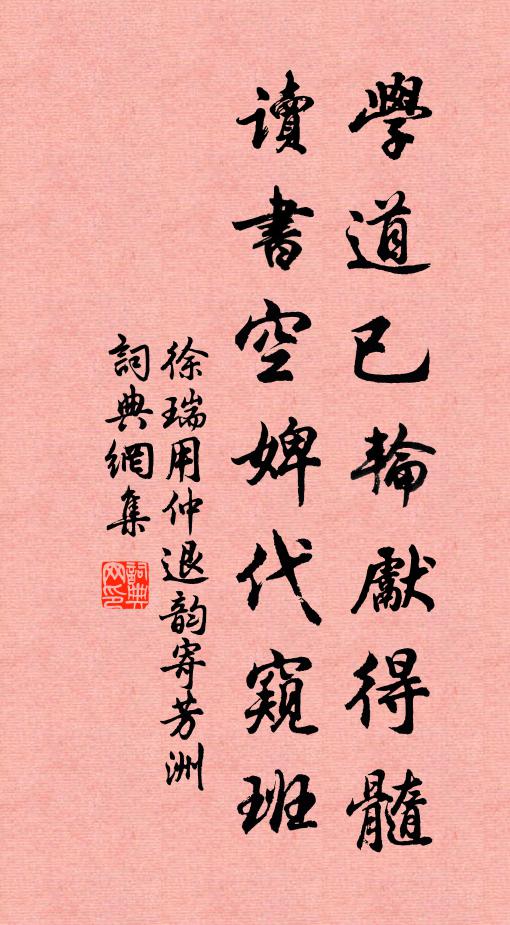 學道已輪獻得髓
讀書空婢代窺班
徐瑞用仲退韵寄芳洲
詞典網集
詞典
网印